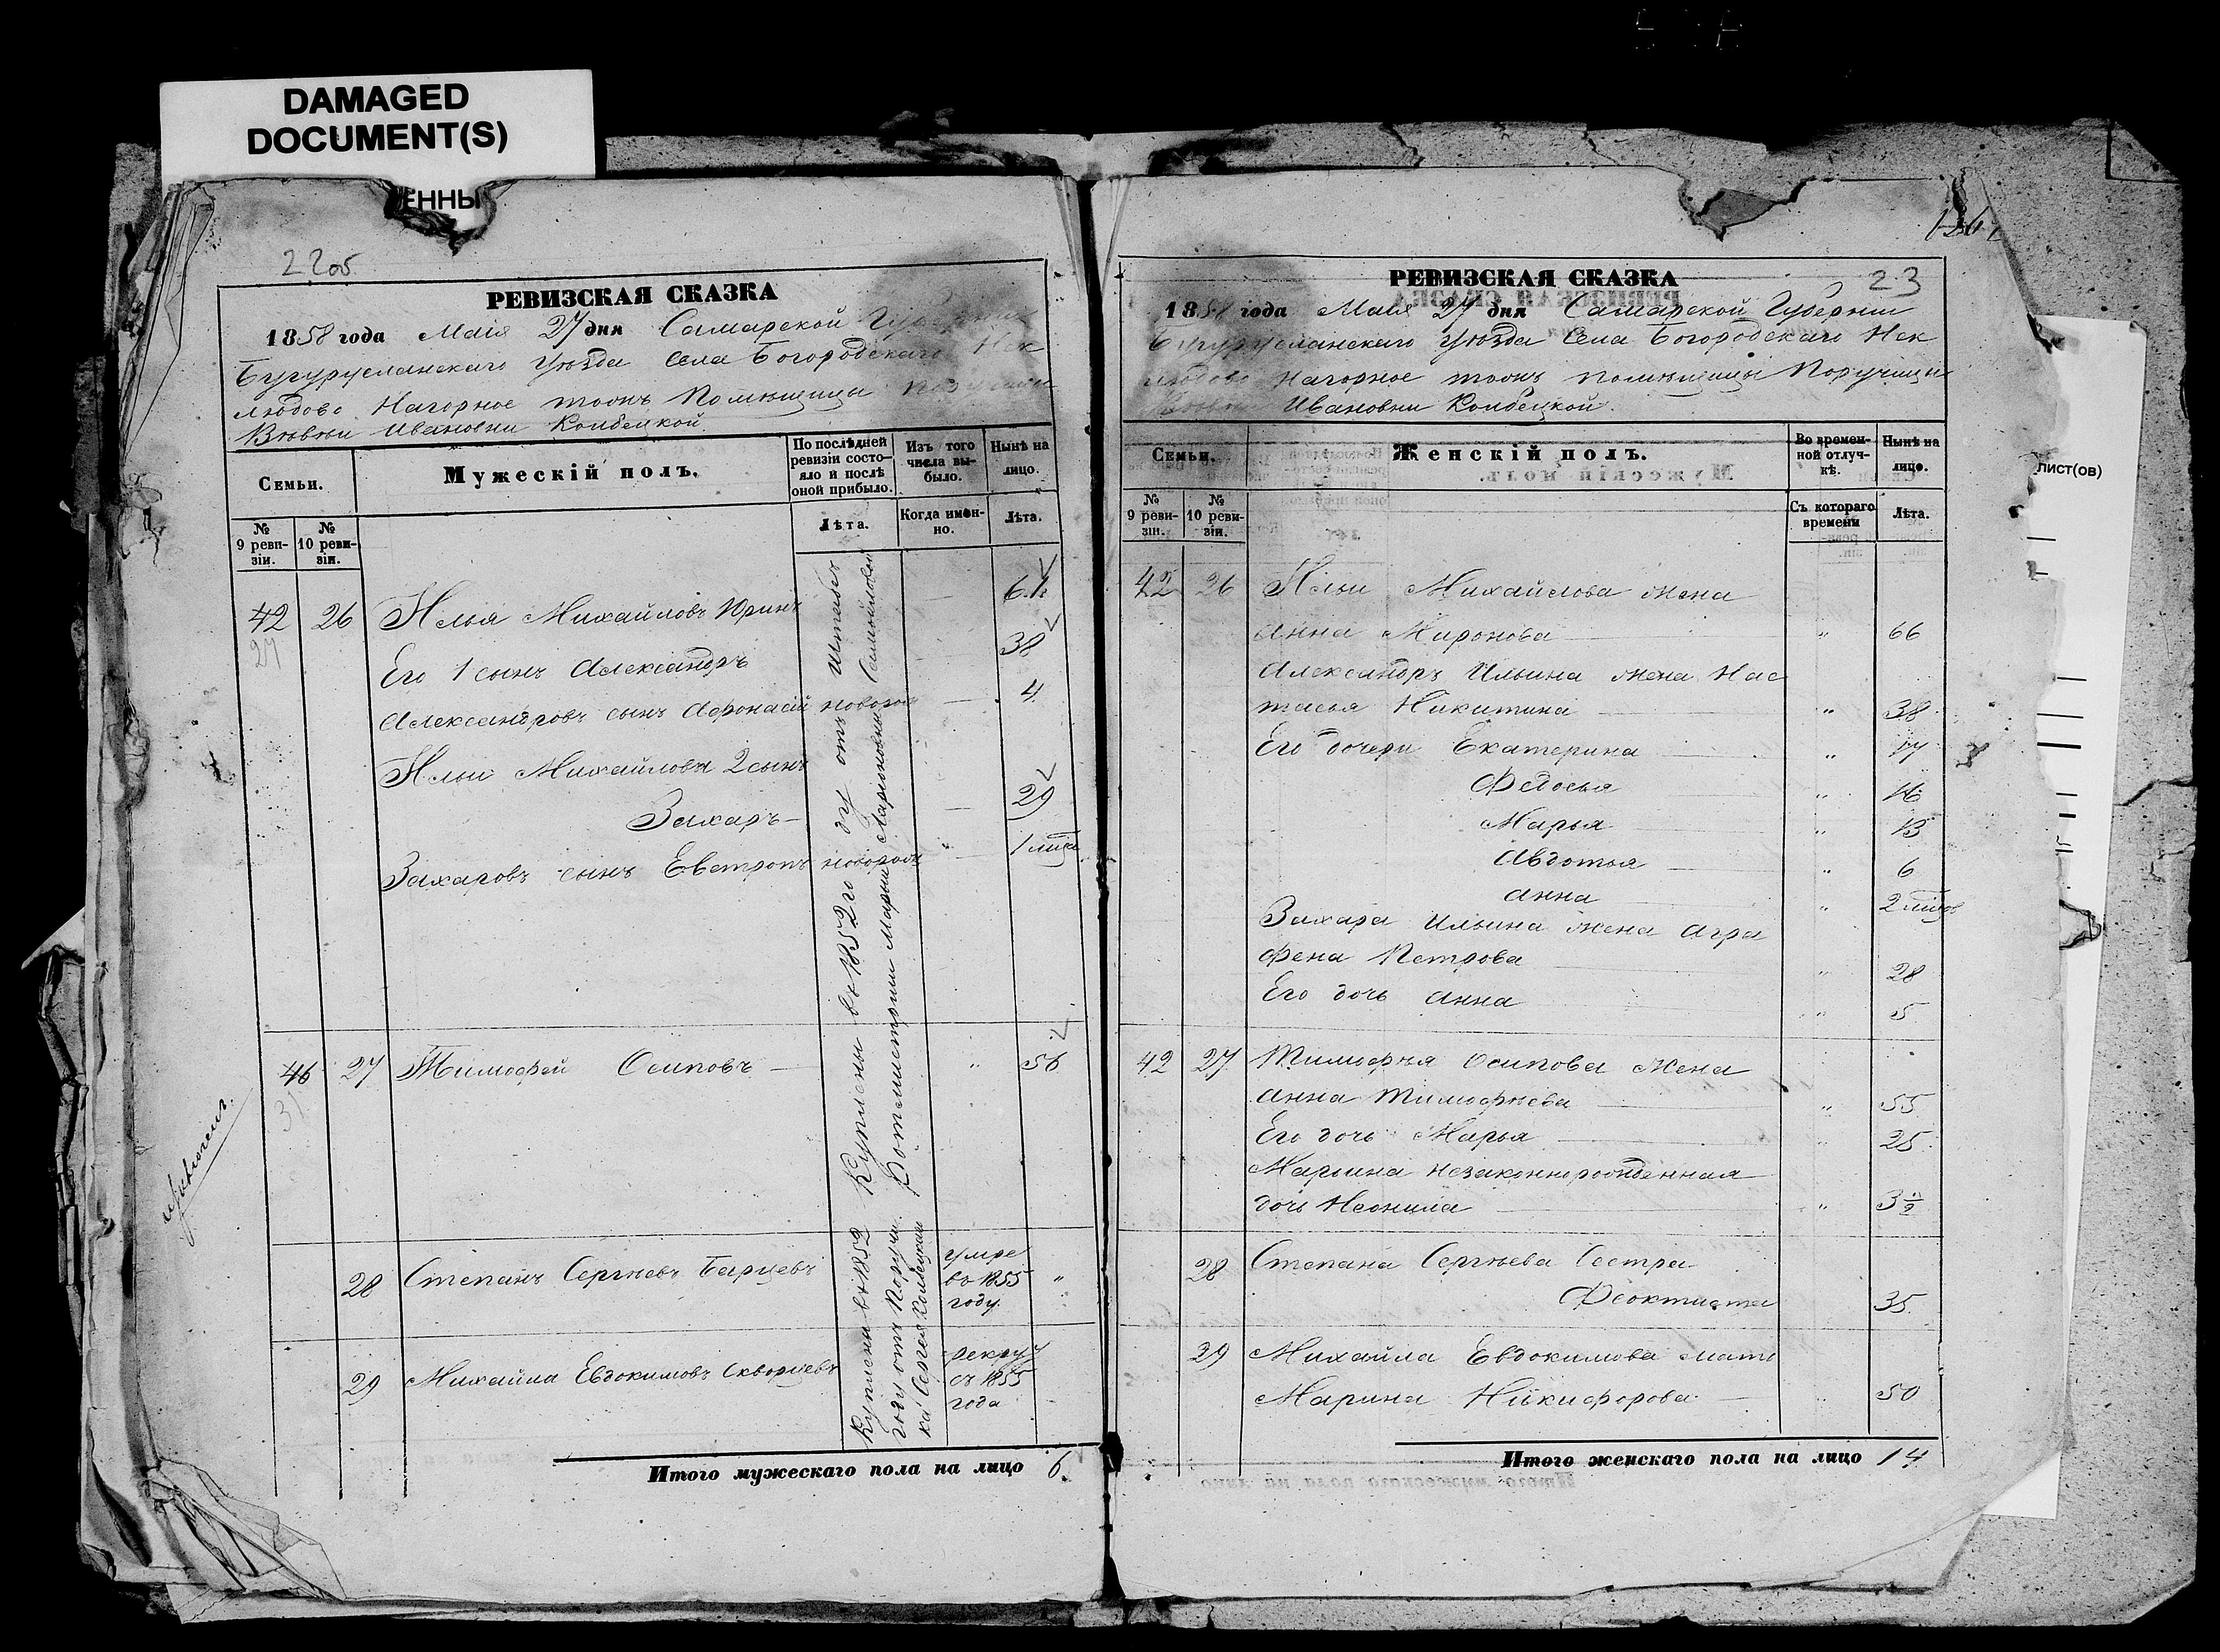 DAMAGED
DOCUMENT(S)
ЕННЫ
22об
РЕВИЗСКАЯ СКАЗКА
1858 года Маія 27 дня Самарской Губерніи
Бугурусланскаго Уѣзда Села Богородскаго Нек
людово Нагорное тожъ Помѣщицы
Ивановны Коибецкой.
Семьи.
Мужескій полъ.
По послѣдней ревизіи состояло и послѣ оной прибыло.
Изъ того числа выбыло.
Нынѣ на лицо.
№ 9 ревизіи.
№ 10 ревизіи.
Лѣта.
Когда именно.
Лѣта.
42 26 Илья Михайловъ Юринъ
27
Его 1 сынъ Александръ 38
Александровъ сынъ Афонасій новорож 4
Ильи Михайлова 2 сынъ
Захаръ 29
Захаровъ сынъ Евстропъ новорож 1
46 27 Тимофей Осиповъ " 56
31
28 Степанъ Сергѣевъ Барцевъ умре въ 1855 году "
29 Михайла Евдокимовъ Скворцевъ рекрут съ 1855 года
Куплены въ 1852 году отъ Штабсъ
Ротмистрши Марьи Иларіоновны Самойловой
Куплены въ 1852
году отъ Поручи
ка Сергея Коибецкаго
Итого мужескаго пола на лицо 6.
23
РЕВИЗСКАЯ СКАЗКА
1858 года Маія 27 дня Самарской Губерніи
Бугурусланскаго Уѣзда Села Богородскаго Нек
людово Нагорное тожъ помѣщицы Поручицы
Ивановны Коибецкой.
Семьи.
Женскій полъ.
Во временной отлучкѣ.
Нынѣ на лицо.
№ 9 ревизіи.
№ 10 ревизіи.
Съ котораго времени
Лѣта.
42 26 Ильи Михайлова жена
Анна Миронова " 66
Александра Ильина жена Нас
тасья Никитина " 38
Его дочери Екатерина " 17
Федосья " 16
Марья " 13
Авдотья " 6
Анна " 2
Захара Ильина жена Агра
фена Петрова " 28
Его дочь Анна " 5
42 27 Тимофѣя Осипова жена
Анна Тимофѣева " 55
Его дочь Марья " 25
Марьина незаконнорожденная
дочь Неонила " 3 ½
28 Степана Сергѣева Сестра
Феоктиста 35.
29 Михайла Евдокимова мать
Марина Никифорова " 50
Итого женскаго пола на лицо 14
лист(ов)